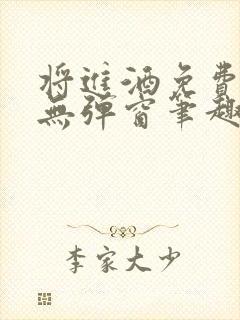 将进酒免费
无弹窗笔趣
李家大少